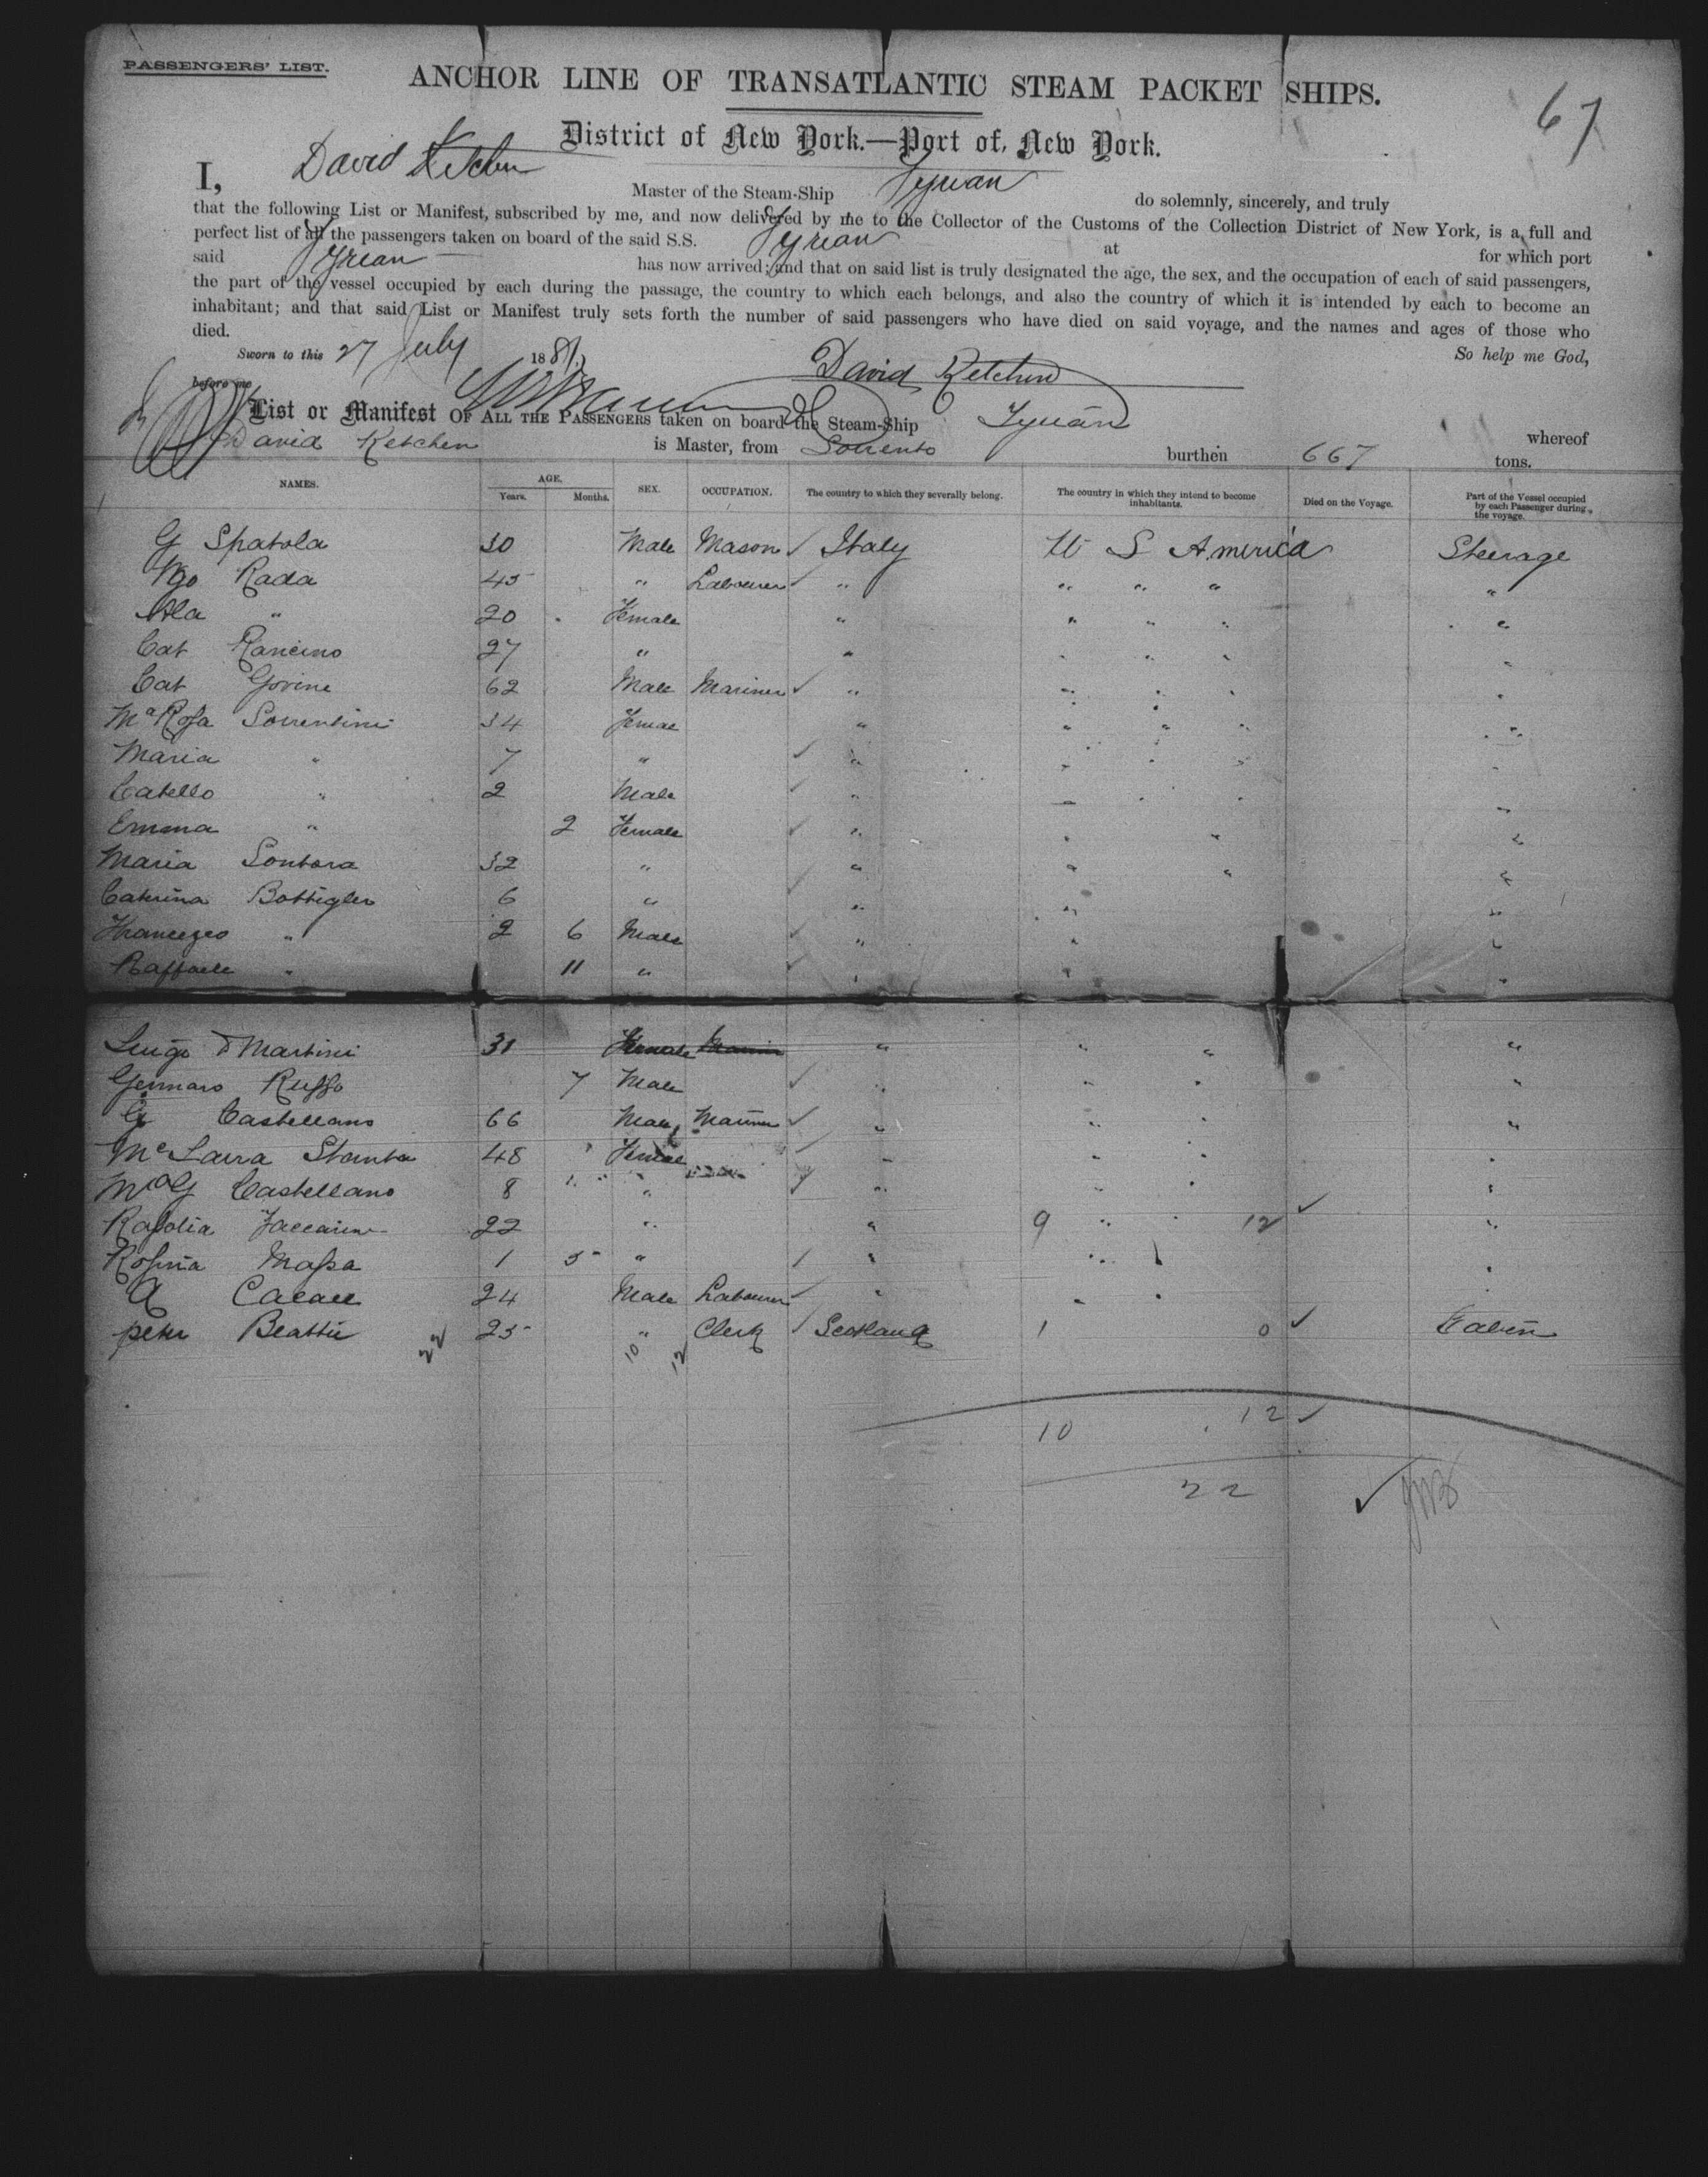 PASSENGERS' LIST.
67
ANCHOR LINE OF TRANSATLANTIC STEAM PACKET SHIPS.
District of New York.—Port of New York.
I, David Ketchen Master of the Steam-Ship Tyrian do solemnly, sincerely, and truly
that the following List or Manifest, subscribed by me, and now delivered by me to the Collector of the Customs of the Collection District of New York, is a full and
perfect list of all the passengers taken on board of the said S.S. Tyrian at for which port
said Tyrian has now arrived; and that on said list is truly designated the age, the sex, and the occupation of each of said passengers,
the part of the vessel occupied by each during the passage, the country to which each belongs, and also the country of which it is intended by each to become an
inhabitant; and that said List or Manifest truly sets forth the number of said passengers who have died on said voyage, and the names and ages of those who
died. So help me God,
Sworn to this 27 July 1881.
before me David Ketchen
List or Manifest OF ALL THE PASSENGERS taken on board the Steam-Ship Tyrian whereof
David Ketchen is Master, from Sorrento burthen 667 tons.
NAMES. AGE. Years. Months. SEX. OCCUPATION. The country to which they severally belong. The country in which they intend to become inhabitants. Died on the Voyage. Part of the Vessel occupied by each Passenger during the voyage.
G Spatola 30 Male Mason ✓ Italy U S America Steerage
Rada 45 " Labourer ✓ " " " " "
" 20 Female " " " " "
Cat Rancino 27 " " " " " "
Cat Govine 62 Male Mariner ✓ " " " " "
Ma Rosa Sorrentini 34 Femae " " " " "
Maria " 7 " ✓ " " " " "
Catello " 2 Male ✓ " " " " "
Emma " 2 Female ✓ " " " "
Maria Sontora 32 " " " " "
Caterina Bottiglio 6 " ✓ " " "
" 2 6 Male ✓ " " "
Raffaele " 11 " ✓ " " "
Luigo D Martini 31 Female " " " "
Gennaro Russo 7 Male ✓ " " " "
G Castellano 66 Male Mariner ✓ " " " "
Female ✓ " " " "
48
Ma G Castellano 8 " ✓ " " " "
22 " " 9 " " 12 ✓ "
Rosina Massa 1 5 " ✓ " " " "
A Cacace 24 Male Labourer ✓ " " " "
Peter Beattie 25 " Clerk ✓ Scotland 1 0 ✓ Cabin
22 10 12
10 12 ✓
22 ✓